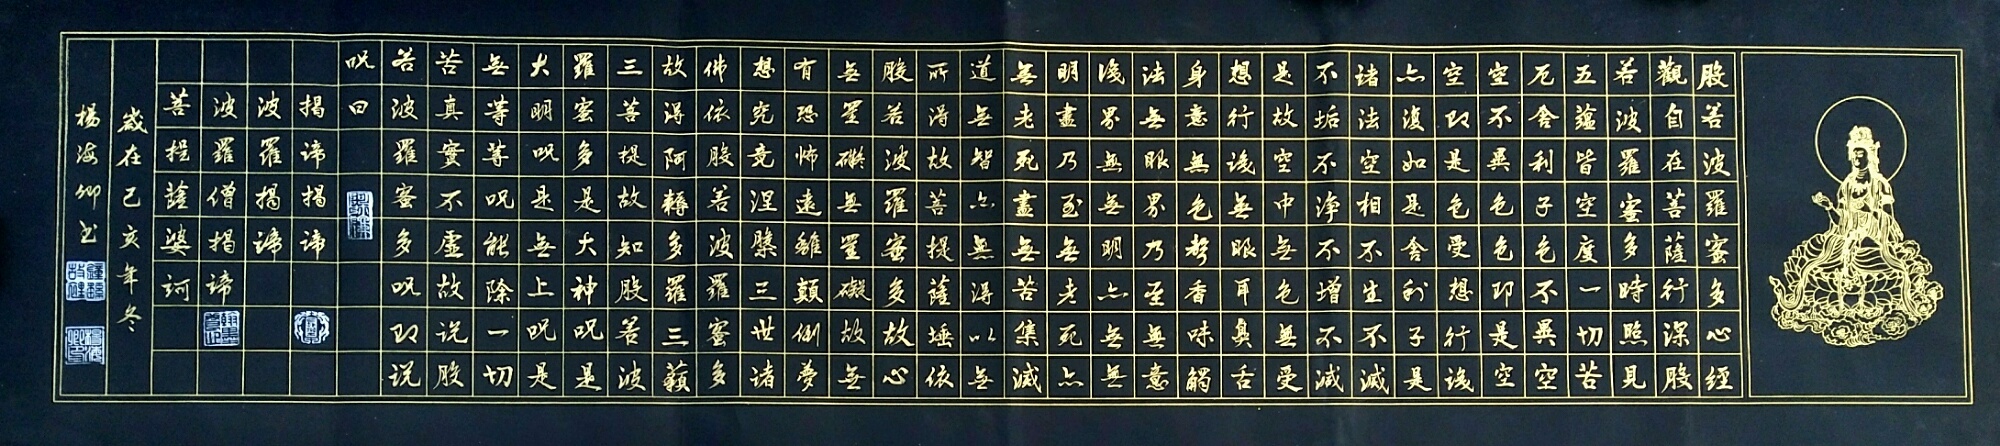 般若波羅蜜多心經
觀自在菩薩行深般
若波羅蜜多時照見
五蘊皆空度一切苦
厄舍利子色不異空
空不異色色即是空
空即是色受想行識
亦復如是舍利子是
諸法空相不生不滅
不垢不淨不增不減
是故空中無色無受
想行識無眼耳鼻舌
身意無色聲香味觸
法無眼界乃至無意
識界無無明亦無無
明盡乃至無老死亦
無老死盡無苦集滅
道無智亦無得以無
所得故菩提薩埵依
般若波羅蜜多故心
無罣礙無罣礙故無
有恐怖遠離顛倒夢
想究竟涅槃三世諸
佛依般若波羅蜜多
故得阿耨多羅三藐
三菩提故知般若波
羅蜜多是大神呪是
大明呪是無上呪是
無等等呪能除一切
苦真實不虛故説般
若波羅蜜多呪即説
呪曰
揭諦揭諦
波羅揭諦
波羅僧揭諦
菩提薩婆訶
歲在己亥年冬
楊海卿书